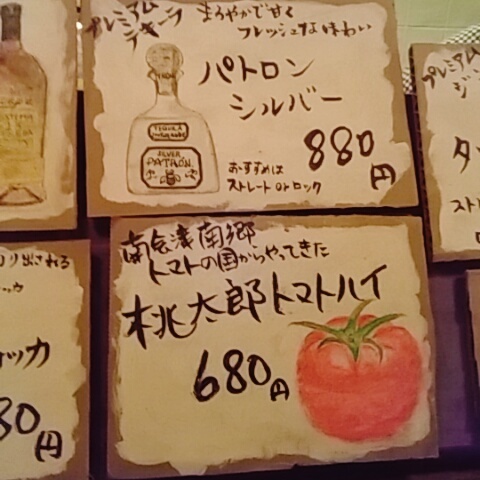 プレミアム
テキーラ
まろやかで甘く
フレッシュな味わい
パトロン
シルバー
TEQUILA
SILVER
PATRÓN
880円
おすすめは
ストレート or ロック
南会津南郷
トマトの国からやってきた
桃太郎トマトハイ
680円
プレミアム
ジン
タ
ストレ
り出される
ッカ
ォッカ
80円